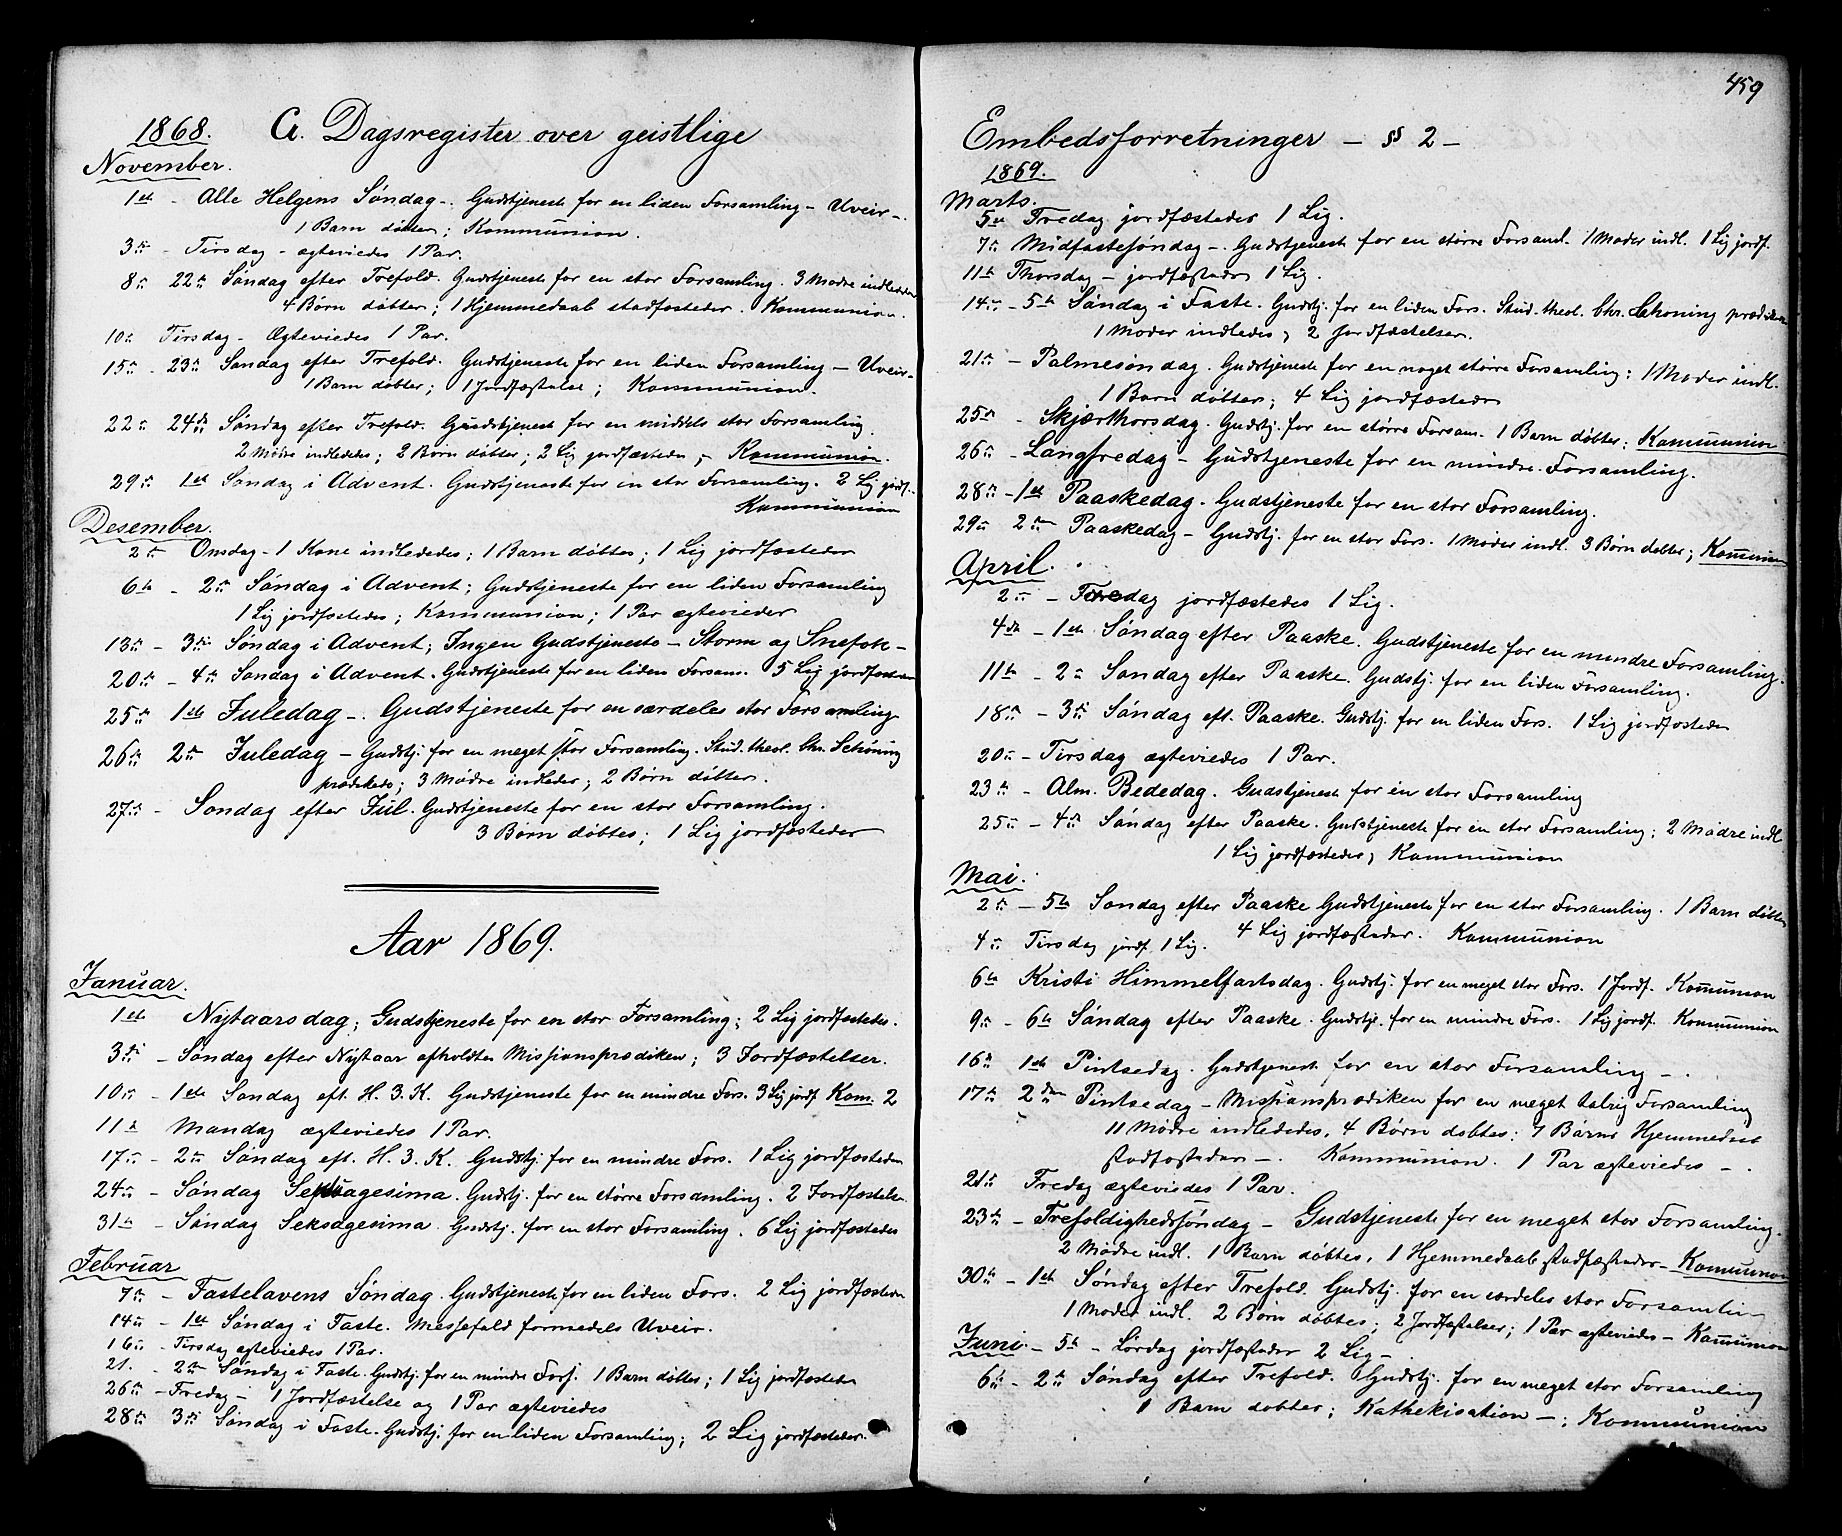 1868. A. Dagsregister over geistlige
November.
1ste - Alle Helgens Søndag -. Gudstjeneste for en liden Forsamling - Uveir -.
1 Barn døbtes; Kommunion.
3die - Tirsdag - ægteviedes 1 Par.
8de 22de Søndag efter Trefold. Gudstjeneste for en stor Forsamling. 3 Mødre indledede
4 Børn døbtes; 1 Hjemmedaab stadfæstedes. Kommunion.
10de Tirsdag - Ægteviedes 1 Par.
15de - 23de Søndag efter Trefold. Gudstjeneste for en liden Forsamling - Uveir -
1 Barn døbtes; 1 Jordfæstelse; Kommunion.
22de 24de Søndag efter Trefold. Gudstjeneste for en middels stor Forsamling.
2 Mødre indledes; 2 Børn døbtes; 2 Lig jordfæstedes; - Kommunion.
29de 1ste Søndag i Advent. Gudstjeneste for en stor Forsamling. 2 Lig jordf.
Kommunion
Desember.
2den Onsdag - 1 Kone indlededes; 1 Barn døbtes; 1 Lig jordfæstedes
6te - 2den Søndag i Advent; Gudstjeneste for en liden Forsamling
1 Lig jordfæstedes; Kommunion; 1 Par ægtevieder
13de - 3die Søndag i Advent; Ingen Gudstjeneste - Storm og Snefok -
20de - 4de Søndag i Advent. Gudstjeneste for en liden Forsam. 5 Lig jordfæstedes
25de 1ste Juledag -. Gudstjeneste for en særdeles stor Forsamling
26de 2den Juledag - Gudstj. for en meget stor Forsamling. Stud. theol. Chr. Schöning
prædikede; 3 Mødre indledes; 2 Børn døbtes.
27de - Søndag efter Jul. Gudstjeneste for en stor Forsamling.
3 Børn døbtes; 1 Lig jordfæstedes
Aar 1869.
Januar.
1ste Nytaarsdag; Gudstjeneste for en stor Forsamling; 2 Lig jordfæstedes.
3die - Søndag efter Nytaar afholdtes Missionsprædiken; 3 Jordfæstelser.
10de - 1ste Søndag eft. H. 3. K. Gudstjeneste for en mindre Fors. 3 Lig jordf Kom. 2
11te Mandag ægteviedes 1 Par.
17de - 2den Søndag eft. H. 3. K. Gudstj. for en mindre Fors. 1 Lig jordfæstedes
24de - Søndag Septuagesima. Gudstj. for en större Forsamling. 2 Jordfæstelser
31te - Søndag Seksagesima. Gudstj. for en stor Forsamling. 6 Lig jordfæstedes
Februar
7de - Fastelavens Søndag. Gudstjeneste for en liden Fors. 2 Lig jordfæstedes
14de - 1ste Søndag i Faste. Messefald formedels Uveir.
16de - Tirsdag ægteviedes 1 Par.
21. - 2den Søndag i Faste. Gudstj. for en mindre Fors. 1 Barn døbtes; 1 Lig jordfæstedes
26de - Fredag - 1 Jordfæstelse og 1 Par ægteviedes
28de 3die Søndag i Faste. Gudstj. for en liden Forsamling; 2 Lig jordfæstedes.
459
Embedsforretninger - § 2 -
1869.
Marts.
5te Fredag jordfæstedes 1 Lig.
7de Midfastesøndag -. Gudstjeneste for en större Forsaml. 1 Moder indl. 1 Lig jordf.
11te Thorsdag - jordfæstedes 1 Lig.
14de - 5te Søndag i Faste. Gudstj. for en liden Fors. Stud. theol. Chr. Schöning prædikede
1 Moder indledes; 2 Jordfæstelser.
21de - Palmesøndag. Gudstjeneste for en noget större Forsamling; 1 Moder indl.
1 Barn døbtes; 4 Lig jordfæstedes
25de - Skjærthorsdag. Gudstj. for en större Forsam. 1 Barn døbtes; Kommunion
26de - Langfredag - Gudstjeneste for en mindre Forsamling.
28de - 1ste Paaskedag. Gudstjeneste for en stor Forsamling.
29de 2den Paaskedag - Gudstj. for en stor Fors. 1 Moder indl. 3 Børn døbtes; Kommunion
April.
2den - Fredag jordfæstedes 1 Lig.
4de - 1ste Søndag efter Paaske. Gudstjeneste for en mindre Forsamling.
11te - 2den Søndag efter Paaske. Gudstj. for en liden Forsamling.
18de - 3die Søndag eft. Paaske. Gudstj. for en liden Fors. 1 Lig jordfæstedes
20de - Tirsdag ægteviedes 1 Par.
23de - Alm. Bededag. Gudstjeneste for en stor Forsamling
25de - 4de Søndag efter Paaske. Gudstjeneste for en stor Forsamling; 2 Mødre indl
1 Lig jordfæstedes; Kommunion
Mai.
2den - 5te Søndag efter Paaske Gudstjeneste for en stor Forsamling. 1 Barn døbtes
4 Lig jordfæstedes. Kommunion
4de Tirsdag jordf. 1 Lig.
6te Kristi Himmelfartsdag. Gudstj. for en meget stor Fors. 1 Jordf. Kommunion
9de - 6te Søndag efter Paaske. Gudstj. for en mindre Fors. 1 Lig jordf. Kommunion
16de 1ste Pintsedag. Gudstjeneste for en stor Forsamling -.
17de 2den Pintsedag - Missionsprædiken for en meget talrig Forsamling
11 Mødre indlededes, 4 Børn døbtes; 7 Børns Hjemmedaab
stadfæstedes -. Kommunion. 1 Par ægteviedes -.
21de Fredag ægteviedes 1 Par.
23de - Trefoldighedssøndag - Gudstjeneste for en meget stor Forsamling.
2 Mødre indl. 1 Barn døbtes, 1 Hjemmedaab stadfæstedes - Kommunion
30te - 1ste Søndag efter Trefold. Gudstj. for en særdeles stor Forsamling
1 Moder indl. 2 Børn døbtes; 2 Jordfæstelser; 1 Par ægteviedes - Kommunion
Juni. - 5te - Lørdag jordfæstedes 2 Lig -
6te - 2den Søndag efter Trefold. Gudstj. for en meget stor Forsamling
1 Barn døbtes; Kathekisation -; Kommunion